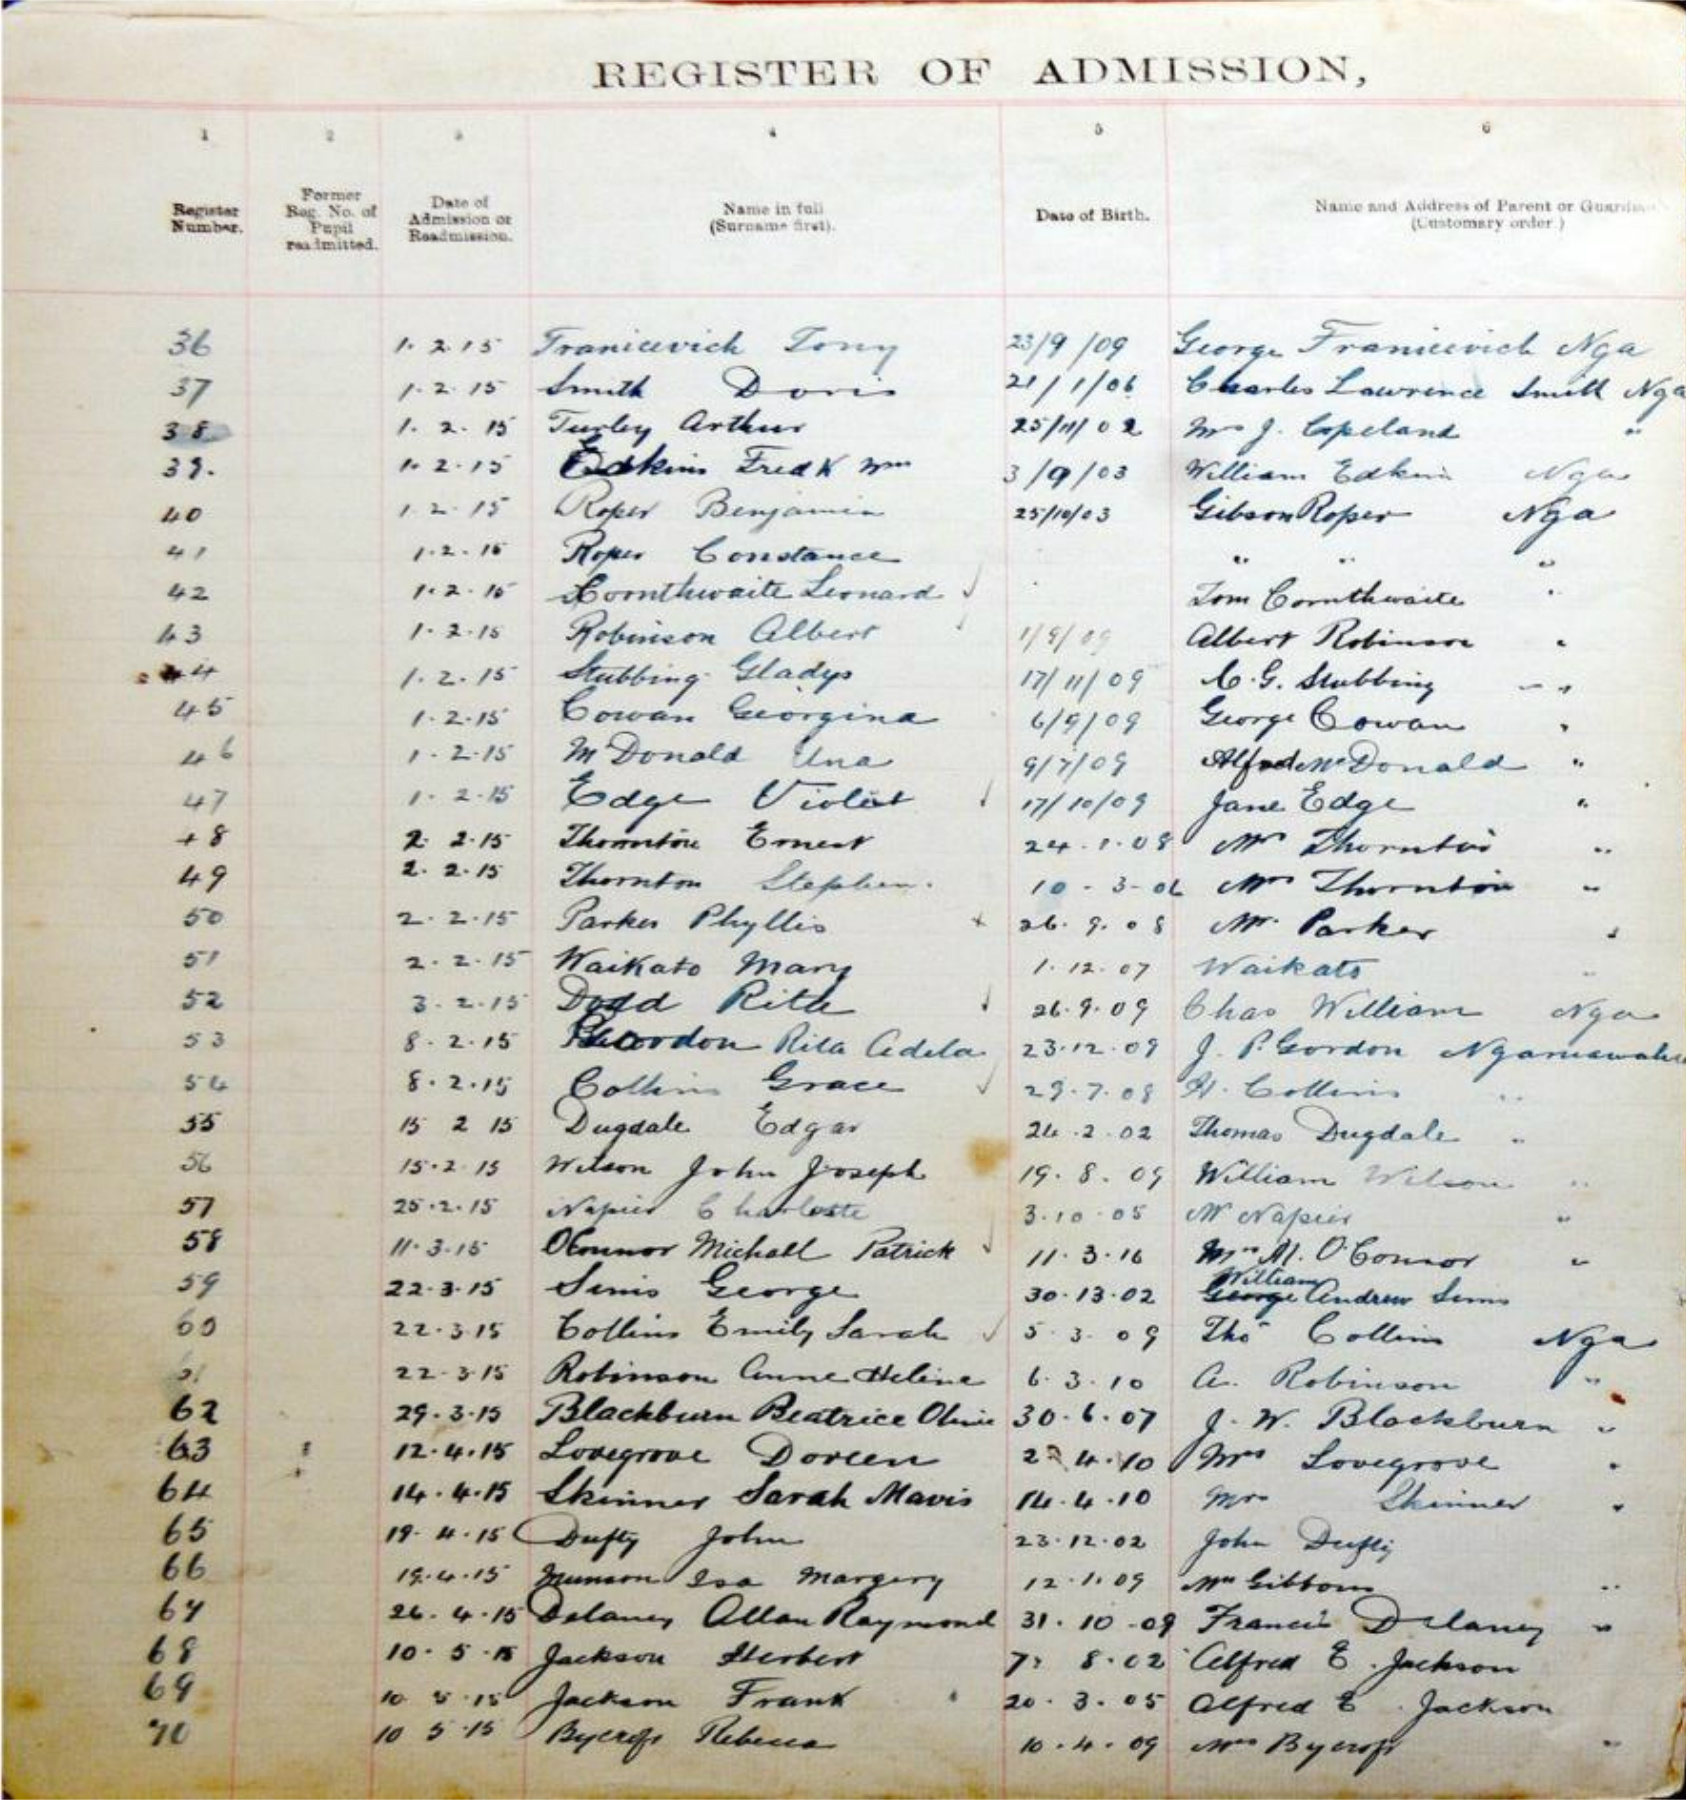 REGISTER OF ADMISSION,
1 2 3 4 5 6
Register Number. Former Reg. No. of Pupil readmitted. Date of Admission or Readmission. Name in full (Surname first). Date of Birth. Name and Address of Parent or Guardian (Customary order.)
36 1.2.15 Franicevich Tony 23/9/09 George Franicevich Nga
37 1.2.15 Smith Doris 21/1/06 Charles Lawrence Smith Nga
38 1.2.15 Turley Arthur 25/11/02 Mrs J. Copeland "
39. 1.2.15 Edkins Fredk Wm 3/9/03 William Edkins Nga
40 1.2.15 Roper Benjamin 25/10/03 Gibson Roper Nga
41 1.2.15 Roper Constance " " "
42 1.2.15 Cornthwaite Leonard ✓ Tom Cornthwaite "
43 1.2.15 Robinson Albert 1/9/09 Albert Robinson "
44 1.2.15 Stubbing Gladys 17/11/09 C.G. Stubbing "
45 1.2.15 Cowan Georgina 6/9/09 George Cowan "
46 1.2.15 McDonald Una 9/7/09 Alfred McDonald "
47 1.2.15 Edge Violet ✓ 17/10/09 Jane Edge "
48 2.2.15 Thornton Ernest 24.1.08 Mrs Thornton "
49 2.2.15 Thornton Stephen. 10-3-06 Mrs Thornton "
50 2.2.15 Parker Phyllis + 26.9.08 Mr. Parker "
51 2.2.15 Waikato Mary 1.12.07 Waikato "
52 3.2.15 Dodd Rita ✓ 26.9.09 Chas William Nga
53 8.2.15 Gordon Rita Adela 23.12.09 J. P. Gordon Ngaruawahia
54 8.2.15 Collins Grace ✓ 29.7.08 H. Collins "
55 15 2 15 Dugdale Edgar 24.2.02 Thomas Dugdale "
56 15.2.15 Wilson John Joseph 19.8.09 William Wilson "
57 25.2.15 Napier Charlotte 3.10.05 Mr Napier "
58 11.3.15 OConnor Michall Patrick ✓ 11.3.16 Mrs M. O'Connor "
59 22.3.15 Sims George 30.13.02 William Andrew Sims
60 22.3.15 Collins Emily Sarah ✓ 5.3.09 Thos Collins Nga
61 22.3.15 Robinson Anne Heline 6.3.10 A. Robinson "
62 29.3.15 Blackburn Beatrice Olivie 30.6.07 J. W. Blackburn "
63 12.4.15 Lovegrove Doreen 4.10 Mrs Lovegrove "
64 14.4.15 Skinner Sarah Mavis 14.4.10 Mrs Skinner "
65 19.4.15 Dufty John 23.12.02 John Dufty
66 19.4.15 Munson Isa Margery 12.1.09 Mrs Gibbons "
67 26.4.15 Delaney Allan Raymond 31.10-09 Francis Delaney "
68 10.5.15 Jackson Herbert 7. 8.02 Alfred E. Jackson
69 10 5.15 Jackson Frank 20.3.05 Alfred E. Jackson
70 10 5.15 Bycroft Rebecca 10.4.09 Mrs Bycroft "